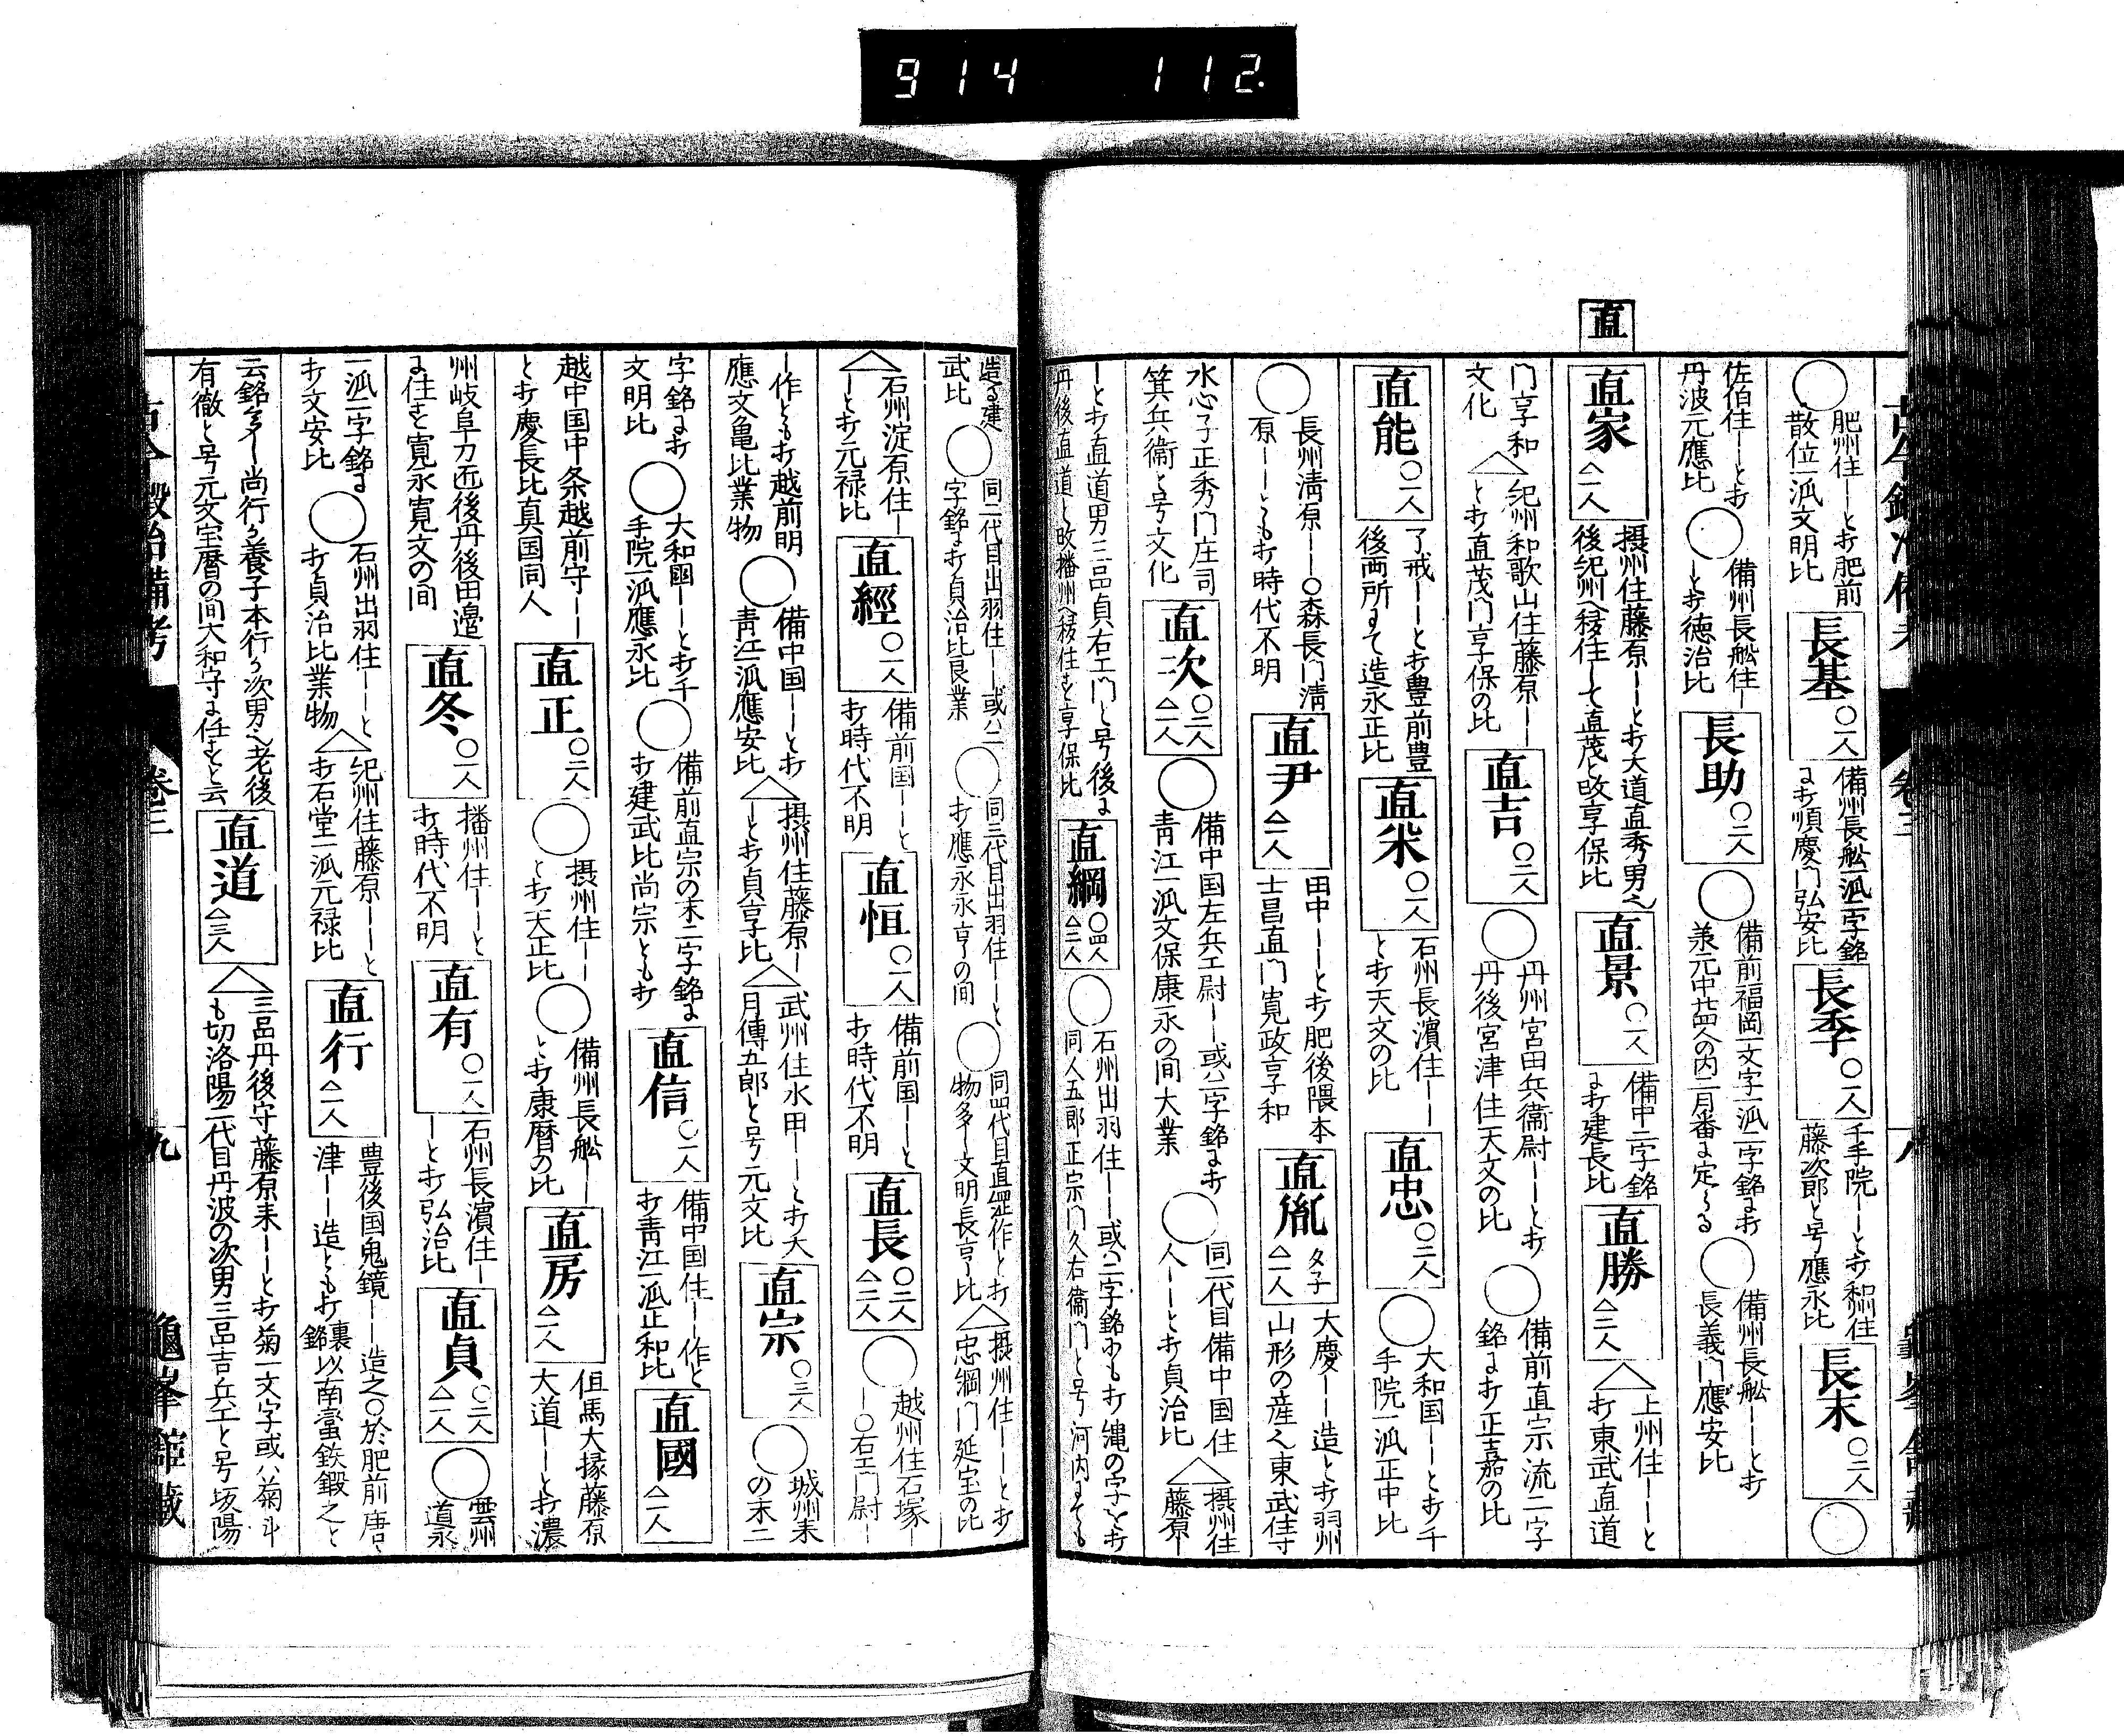 914 112.
直
◯肥州住ーとオ肥前
散位一派文明比
長基 ○一人
備州長船一派二字銘
ニオ順慶門弘安比
長季 ○一人
千手院ーとオ和州住
藤次郎と号應永比
長末 ○二人
◯
佐伯住ーとオ
丹波元應比
◯備州長船住ー
ーとオ徳治比
長助 ○二人
◯備前福岡一文字一派一字銘ニオ
兼元中廿四人の内二月番ニ定る
◯備州長船ーーとオ
長義門應安比
直家 △一人
摂州住藤原ーーとオ大道直秀男也
後紀州へ移住して直茂と改享保比
直景 ○一人
備中二字銘
ニオ建長比
直勝 △二人
△上州住ーーと
オ東武直道
門享和
文化
△紀州和歌山住藤原ー
とオ直茂門享保の比
直吉 ○二人
◯丹州宮田兵衞尉ーーとオ
丹後宮津住天文の比
◯備前直宗流二字
銘ニオ正嘉の比
直能 ○一人
了戒ーーとオ豊前豊
後両所ニて造永正比
直米 ○一人
石州長濱住ーー
とオ天文の比
直忠 ○二人
◯大和国ーーとオ千
手院一派正中比
◯長州清原ーー○森長門清
原ーーともオ時代不明
直尹 △一人
田中ーーとオ肥後隈本
士昌直門寛政享和
直胤 タ子 △一人
大慶ーー造とオ羽州
山形の産也東武住
水心子正秀門庄司
箕兵衞と号文化
直次 ○二人 △一人
◯備中国左兵エ尉ーー或ハ二字銘ニオ
青江一派文保康永の間大業
◯同二代目備中国住
人ーーとオ貞治比
△摂州住
藤原ー
ーとオ直道男三品貞右エ門と号後ニ
丹後直道と改播州へ移住す享保比
直綱 ○四人 △二人
◯石州出羽住ーー或ハ二字銘ニもオ縄の字をオ
同人五郎正宗門久右衞門と号河内ニても
造る建
武比
◯同二代目出羽住ーー或ハ二
字銘ニオ貞治比良業
◯同三代目出羽住ーーと
オ應永永享の間
◯同四代目直綱作とオ
物多ー文明長享比
△摂州住ーーとオ
忠綱門延宝の比
△石州淀原住ー
ーとオ元禄比
直經 ○一人
備前国ーーと
オ時代不明
直恒 ○一人
備前国ーーと
オ時代不明
直長 ○二人 △二人
◯越州住石塚ー
ー○右エ門尉ー
ー作ともオ越前明
應文亀比業物
◯備中国ーーとオ
青江一派應安比
△摂州住藤原ー
ーとオ貞享比
△武州住水田ーーとオ大
月傳五郎と号元文比
直宗 ○三人
◯城州来
の末二
字銘ニオ
文明比
◯大和国ーーとオ千
手院一派應永比
◯備前直宗の末二字銘ニ
オ建武比尚宗ともオ
直信 ○一人
備中国住ーー作と
オ青江一派正和比
直國 △一人
越中国中条越前守ーー
とオ慶長比真国同人
直正 ○二人
◯摂州住ーー
とオ天正比
◯備州長船ーー
とオ康暦の比
直房 △一人
但馬大掾藤原
大道ーーとオ濃
州岐阜刀匠後丹後田邉
ニ住す寛永寛文の間
直冬 ○一人
播州住ーーと
オ時代不明
直有 ○一人
石州長濱住ー
ーとオ弘治比
直貞 ○二人 △一人
◯雲州
道永
一派一字銘ニ
オ文安比
◯石州出羽住ーーと
オ貞治比業物
△紀州住藤原ーーと
オ石堂一派元禄比
直行 △一人
豊後国鬼鏡ーー造之○於肥前唐
津ーー造ともオ裏銘以南蛮鉄鍛之と
云銘多ー尚行ゟ養子本行ゟ次男也老後
有徹と号元文宝暦の間大和守ニ任すと云
直道 △三人
△三品丹後守藤原来ーーとオ菊一文字或ハ菊斗
も切洛陽二代目丹波の次男三品吉兵エと号坂陽
古今鍛冶備考 卷三 九 龜峯館藏